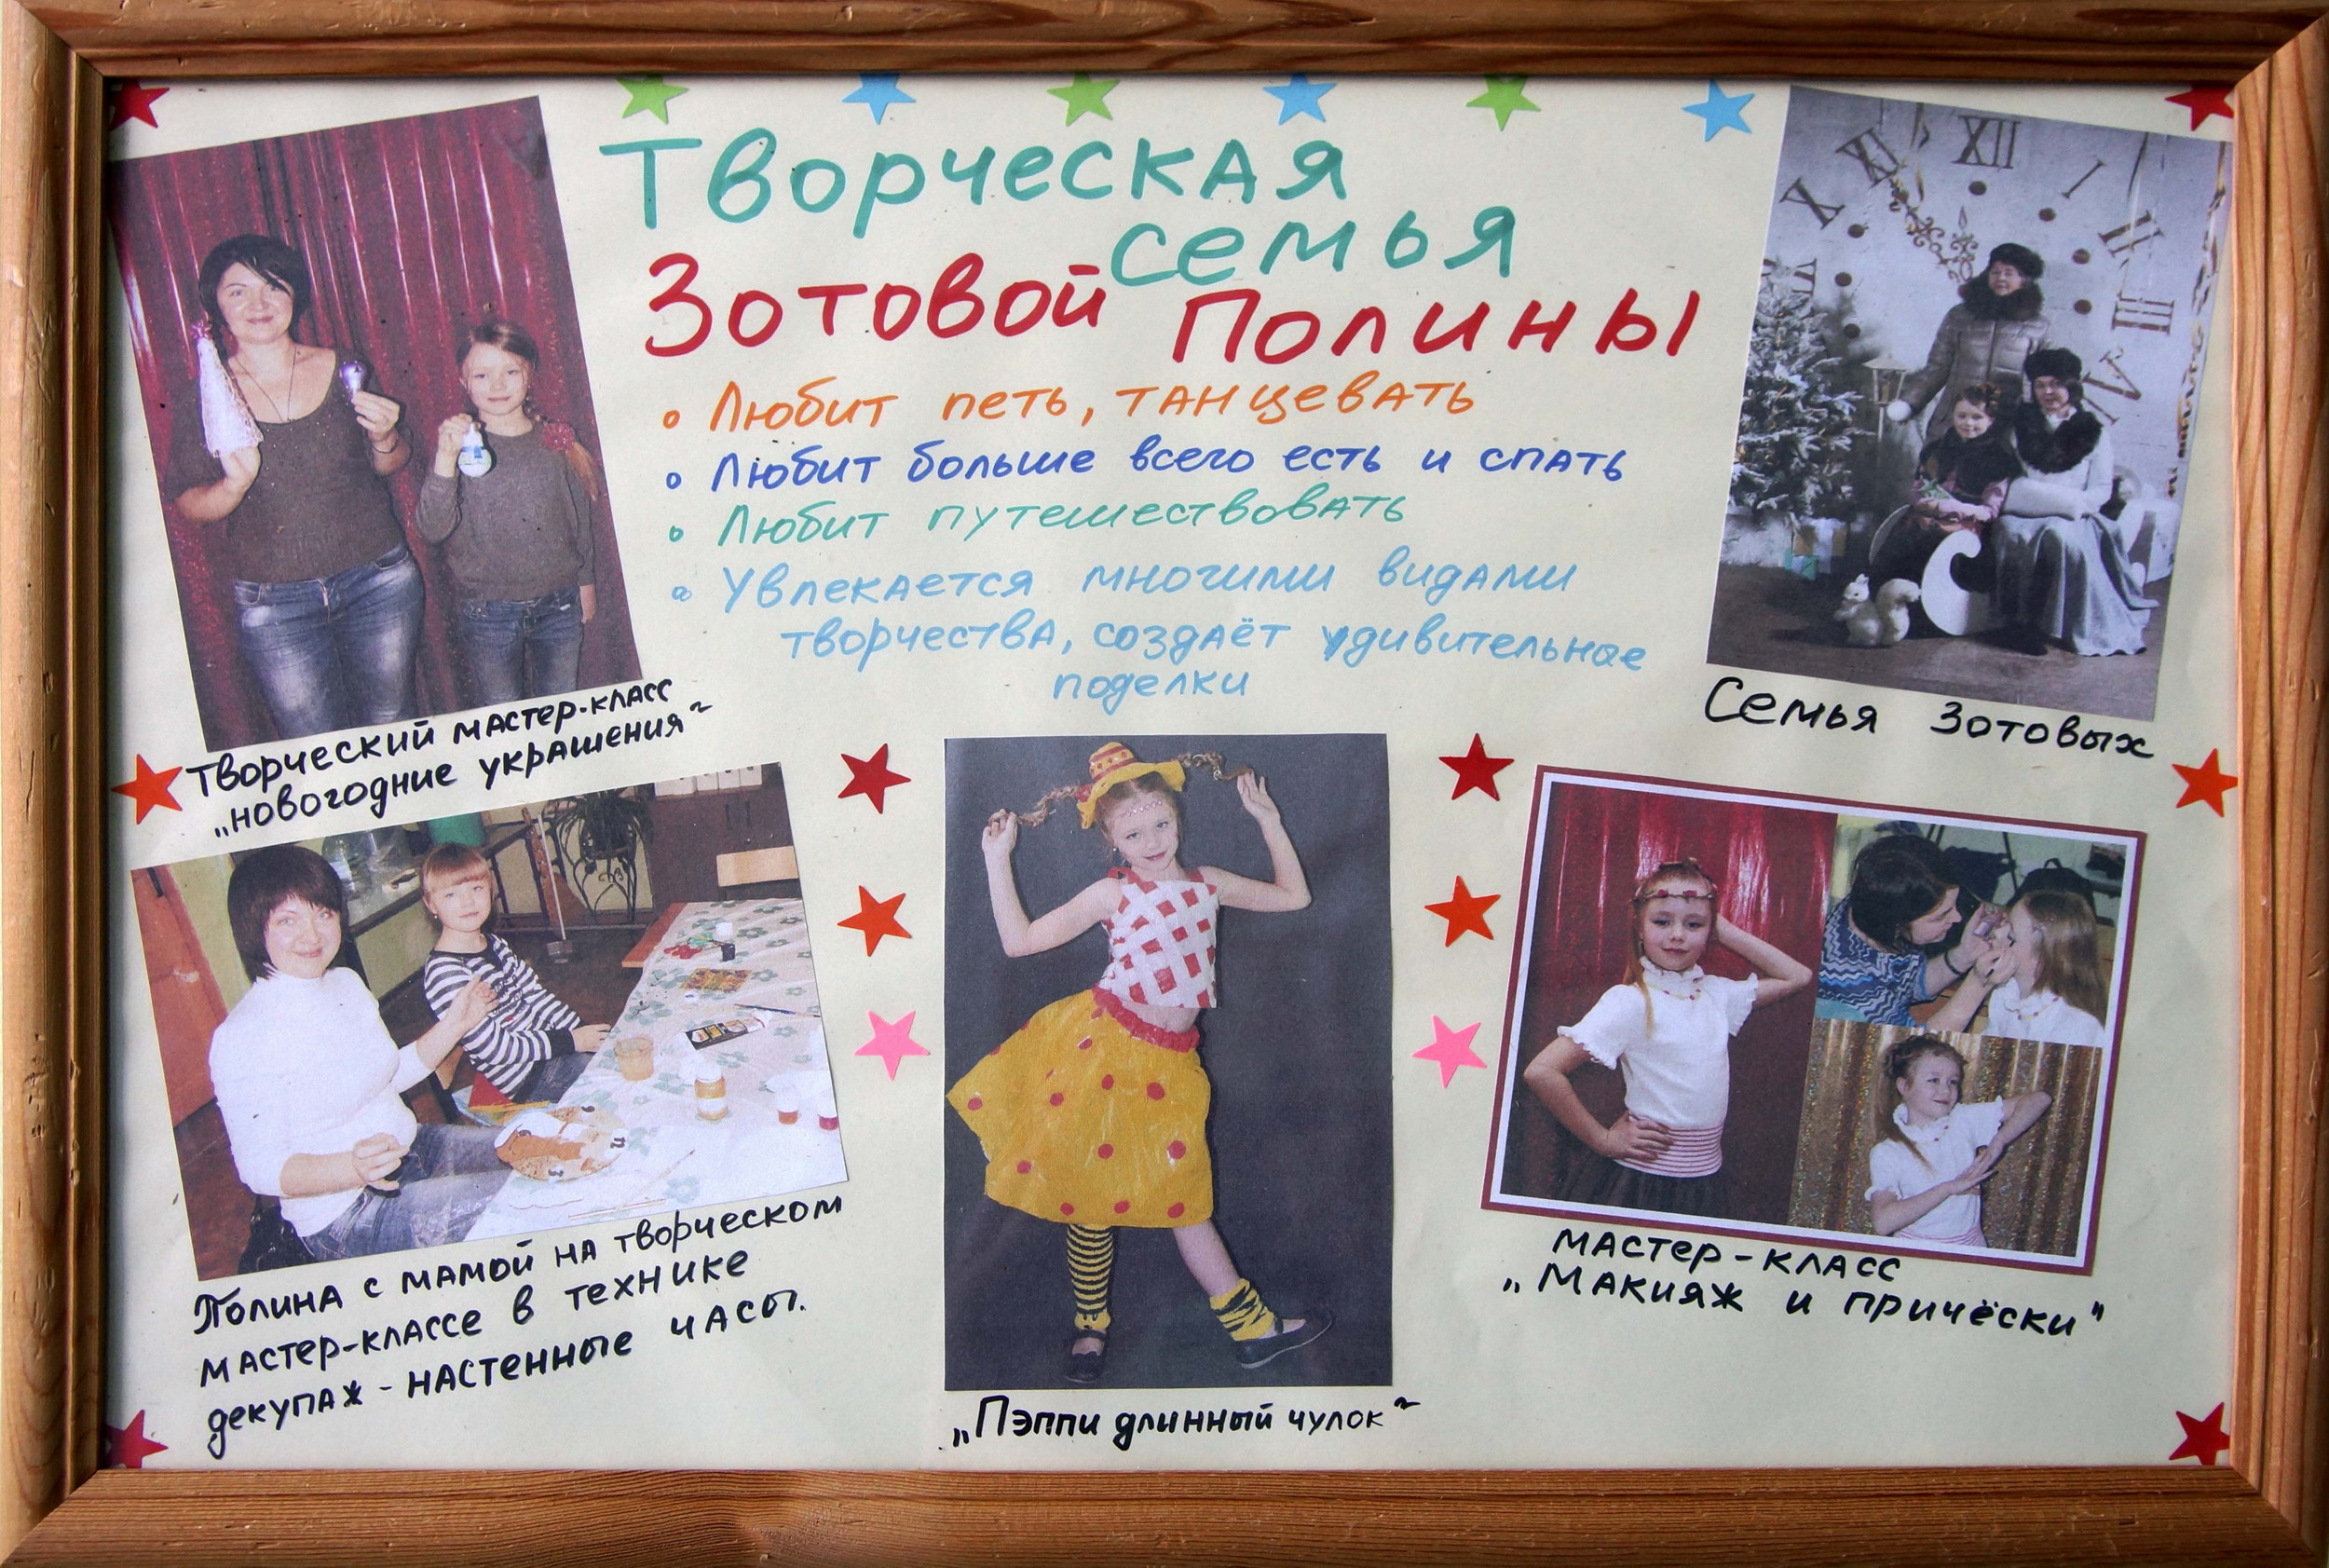 Творческая
семья
Зотовой Полины
Любит петь, танцевать
Любит больше всего есть и спать
Любит путешествовать
Увлекается многими видами
творчества, создаёт удивительные
поделки
Творческий мастер-класс
„новогодние украшения"
XII
I
II
III
X
XI
Семья Зотовых
Полина с мамой на творческом
мастер-классе в технике
декупаж - настенные часы.
„Пэппи длинный чулок"
мастер-класс
„Макияж и причёски"